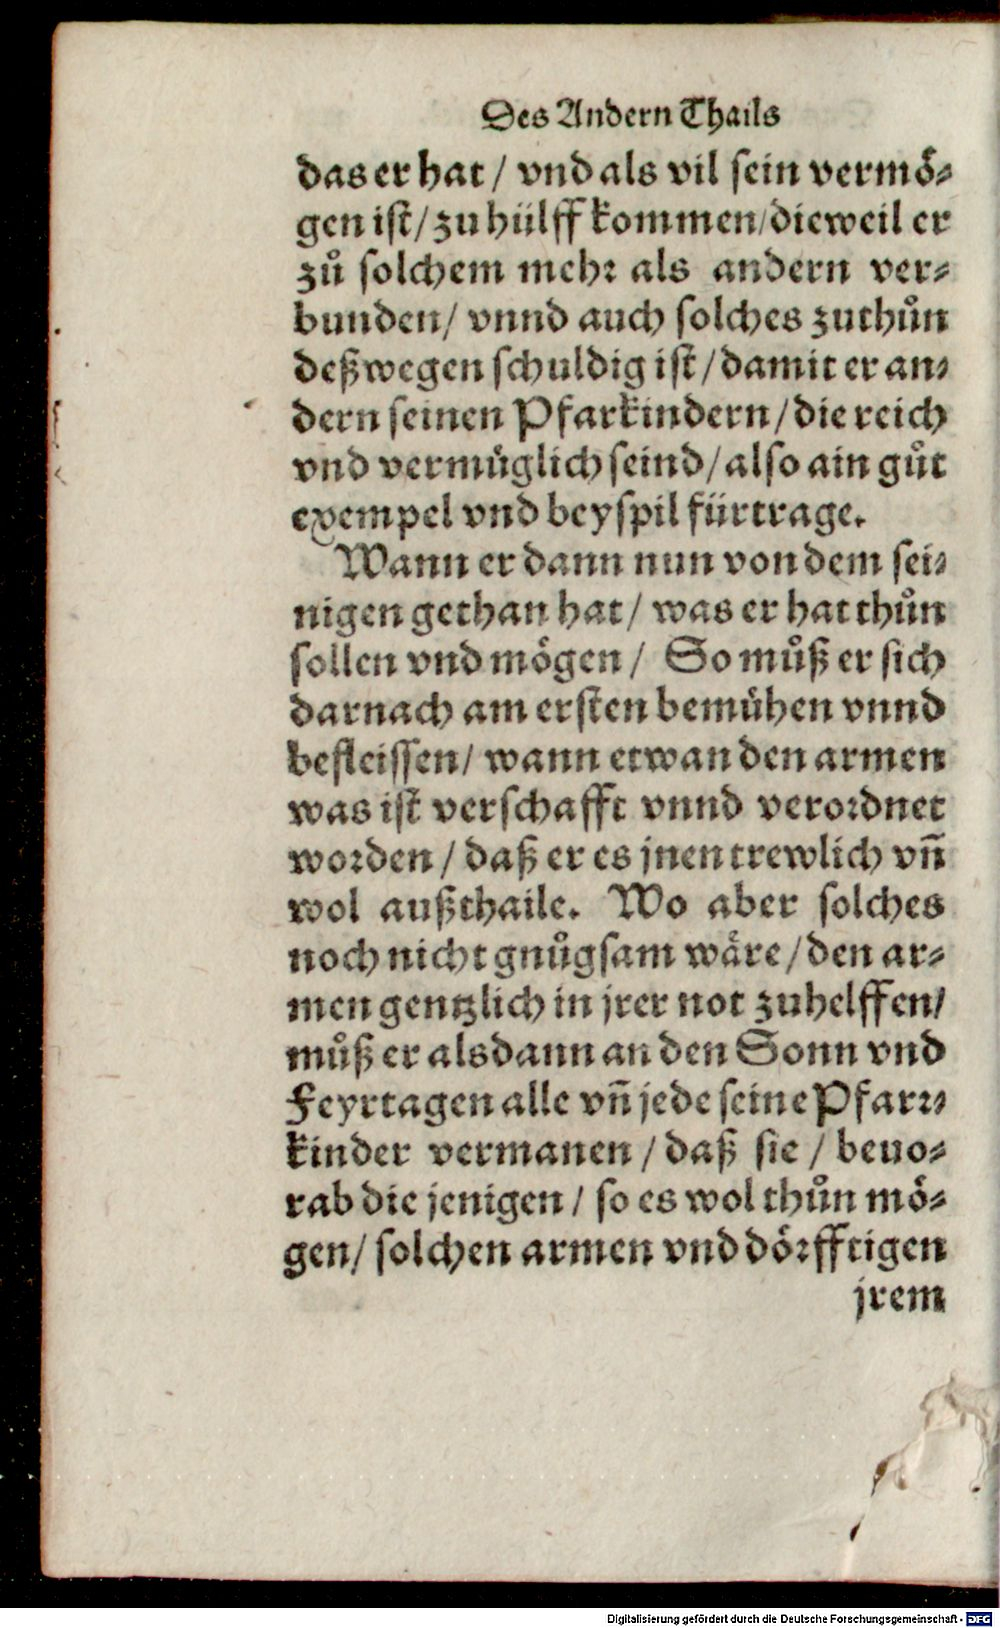 Des Andern Thails
das er hat / vnd als vil sein vermoͤ⸗
gen ist / zu hülff kommen / dieweil er
zů solchem mehr als andern ver⸗
bunden / vnnd auch solches zuthůn
deßwegen schuldig ist / damit er an⸗
dern seinen Pfarkindern / die reich
vnd vermüglich seind / also ain gůt
exempel vnd beyspil fürtrage.
Wann er dann nun von dem sei⸗
nigen gethan hat / was er hat thůn
sollen vnd moͤgen / So můß er sich
darnach am ersten bemühen vnnd
befleissen / wann etwan den armen
was ist verschafft vnnd verordnet
worden / daß er es jnen trewlich vñ
wol außthaile. Wo aber solches
noch nicht gnůgsam waͤre / den ar⸗
men gentzlich in jrer not zuhelffen /
můß er alsdann an den Sonn vnd
Feyrtagen alle vñ jede seine Pfarr⸗
kinder vermanen / daß sie / beuo⸗
rab die jenigen / so es wol thůn moͤ⸗
gen / solchen armen vnd doͤrfftigen
jrem
Digitalisierung gefördert durch die Deutsche Forschungsgemeinschaft - DFG